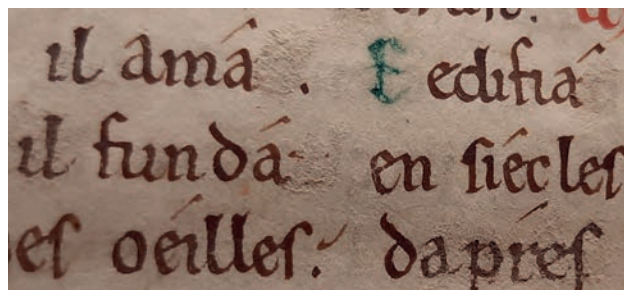 il amá . E edifiá
il fundá en siécles
oéilles. daprés